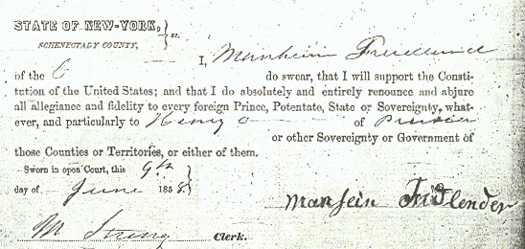 STATE OF NEW-YORK,
SCHENECTADY COUNTY, } ss.
I, Manheim
of the C do swear, that I will support the Consti-
tution of the United States; and that I do absolutely and entirely renounce and abjure
all allegiance and fidelity to every foreign Prince, Potentate, State or Sovereignty, what-
ever, and particularly to Henry of Prussia
or other Sovereignty or Government of
those Counties or Territories, or either of them.
Sworn in open Court, this 9th
day of June 1858
Clerk.